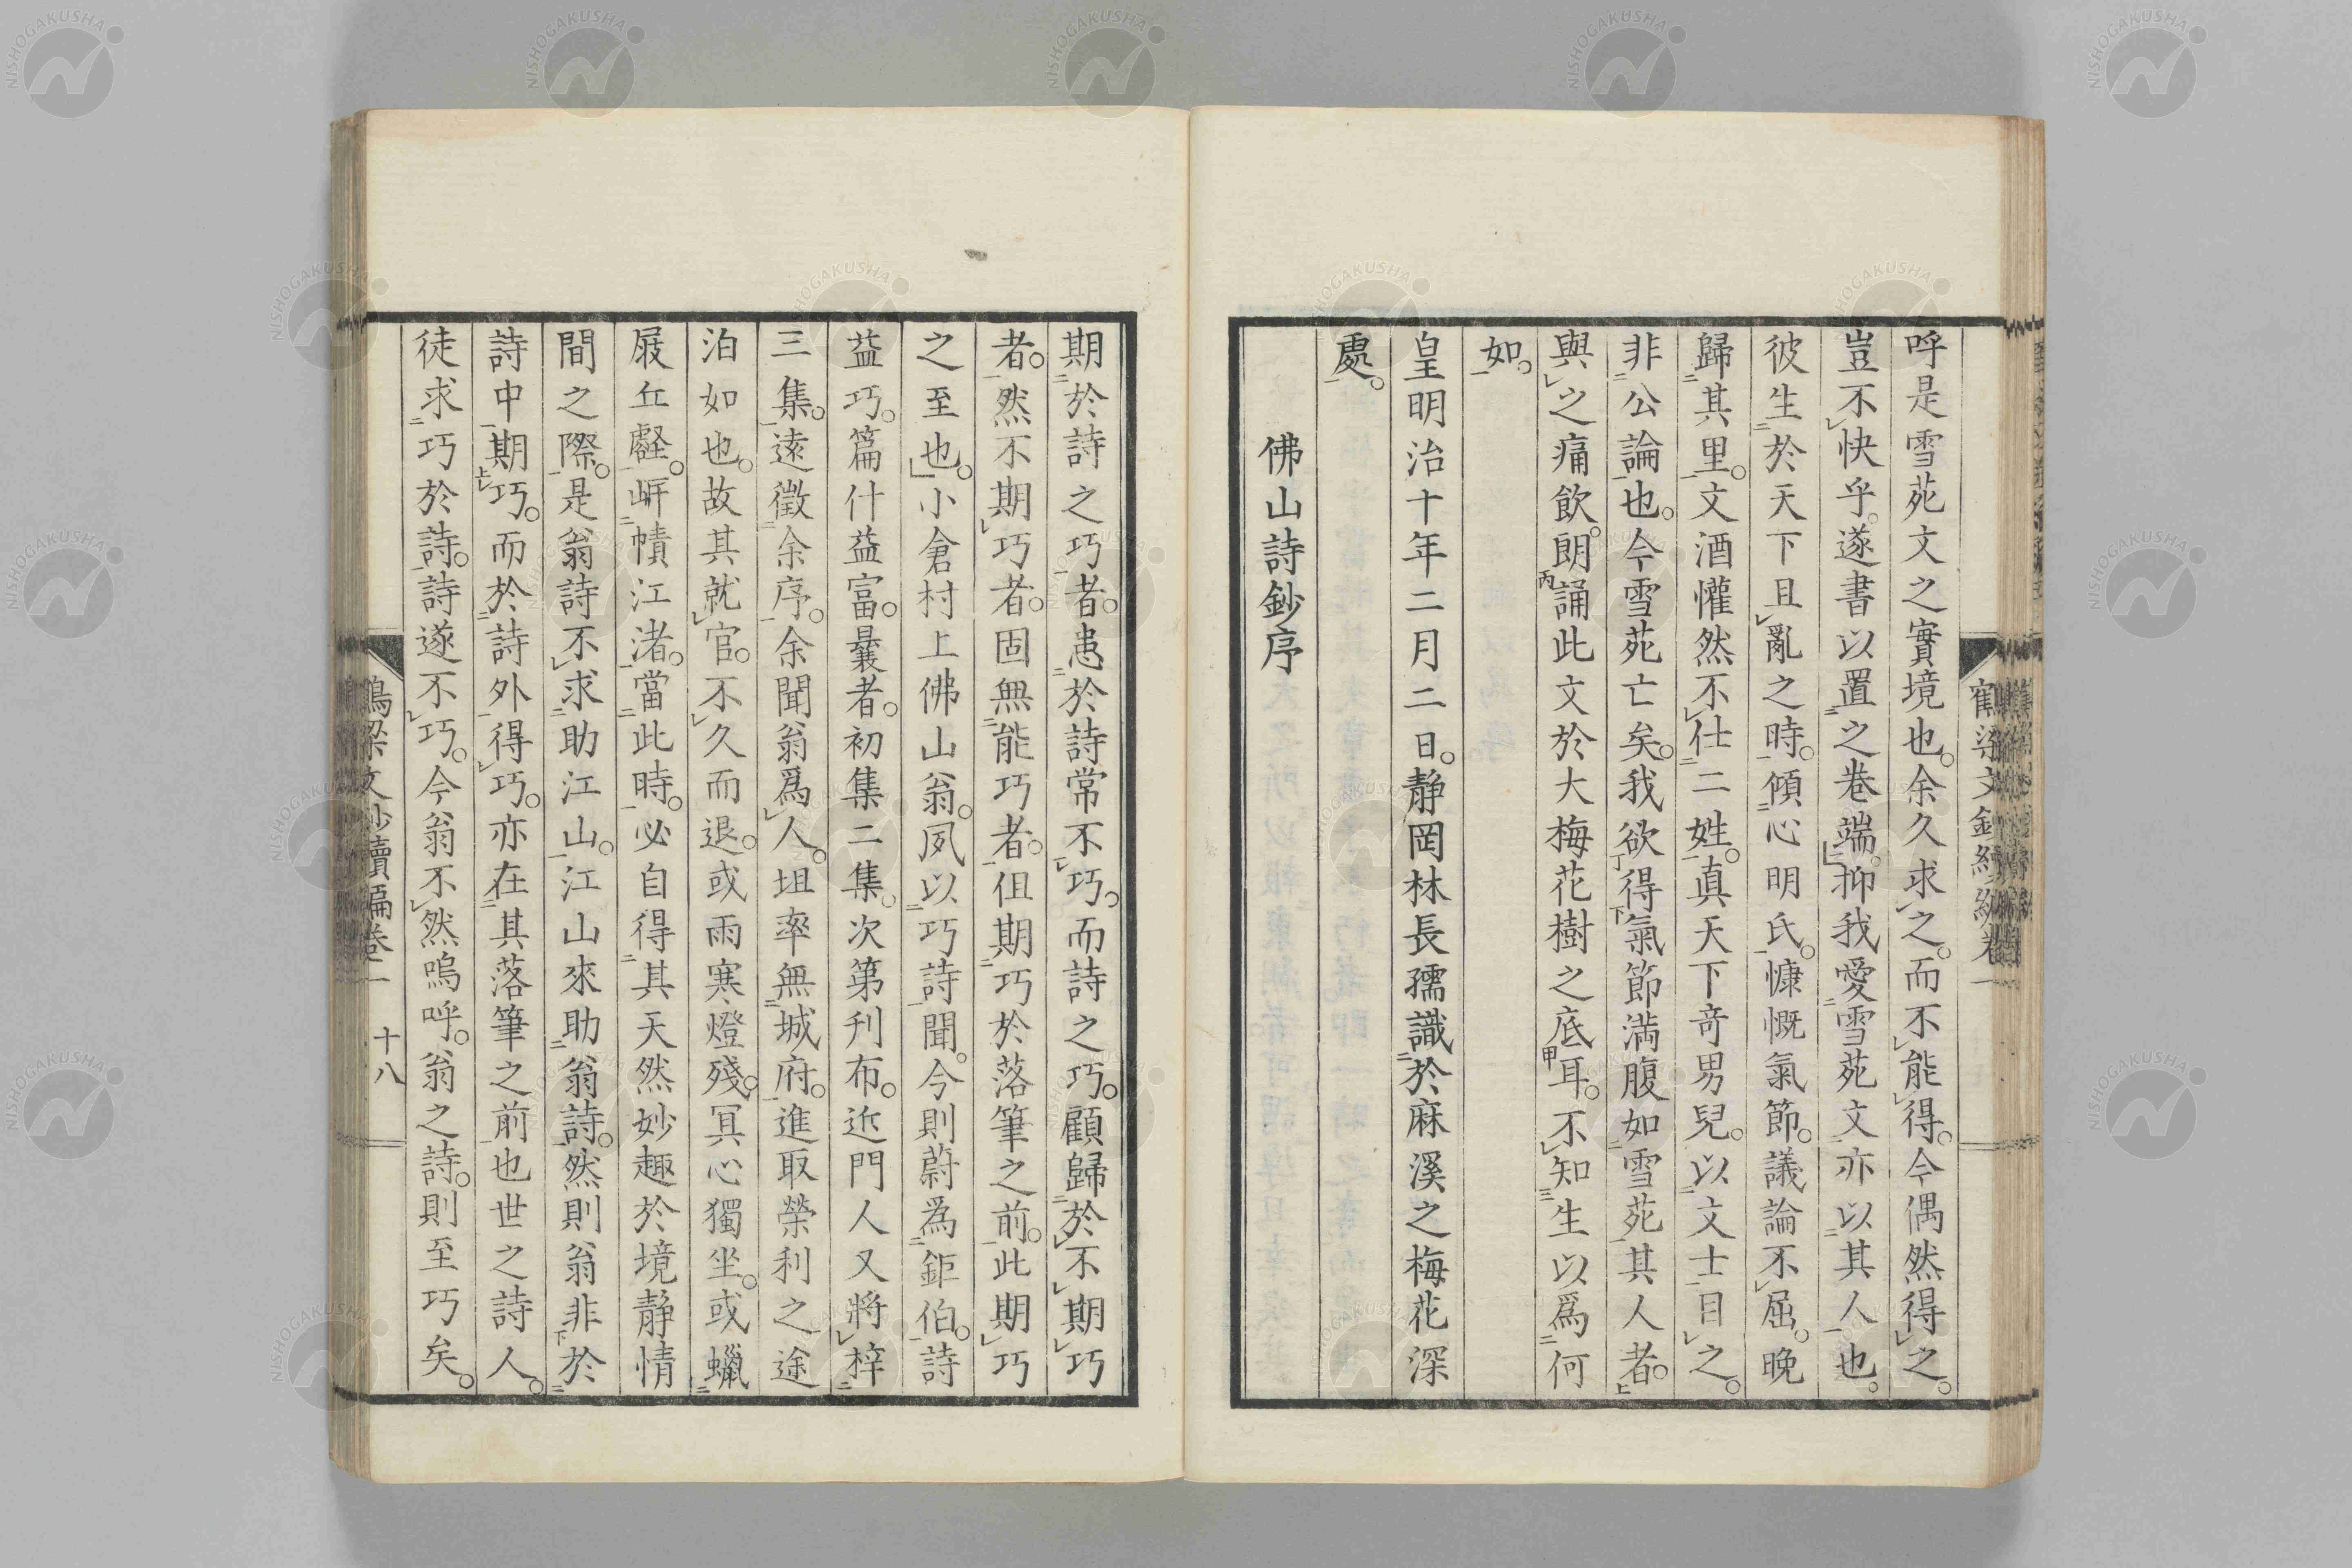 呼是雪苑文之實境也。余久求之。而不能得。今偶然得之。
豈不快乎。遂書以置之卷端。抑我愛雪苑文。亦以其人也。
彼生於天下且亂之時。傾心明氏。慷慨氣節。議論不屈。晚
歸其里。文酒懽然不仕二姓。真天下奇男兒。以文士目之。
非公論也。今雪苑亡矣。我欲得氣節満腹如雪苑其人者。
與之痛飲。朗誦此文於大梅花樹之底耳。不知生以爲何
如。
皇明治十年二月二日。静岡林長孺識於麻溪之梅花深
處。
佛山詩鈔序
期於詩之巧者。患於詩常不巧。而詩之巧。顧歸於不期巧
者。然不期巧者。固無能巧者。但期巧於落筆之前。此期巧
之至也。小倉村上佛山翁。夙以巧詩聞。今則蔚爲鉅伯。詩
益巧。篇什益富。曩者。初集二集。次第刊布。近門人又將梓
三集。遠徵余序。余聞翁爲人。坦率無城府。進取榮利之途
泊如也。故其就官。不久而退。或雨寒燈殘。冥心獨坐。或蠟
屐丘壑。岸幘江渚。當此時。必自得其天然妙趣於境静情
間之際。是翁詩不求助江山。江山來助翁詩。然則翁非於
詩中期巧。而於詩外得巧。亦在其落筆之前也世之詩人。
徒求巧於詩。詩遂不巧。今翁不然嗚呼。翁之詩。則至巧矣。
鶴梁文鈔續編卷一
鶴梁文鈔續編卷二 十八
NISHOGAKUSHA